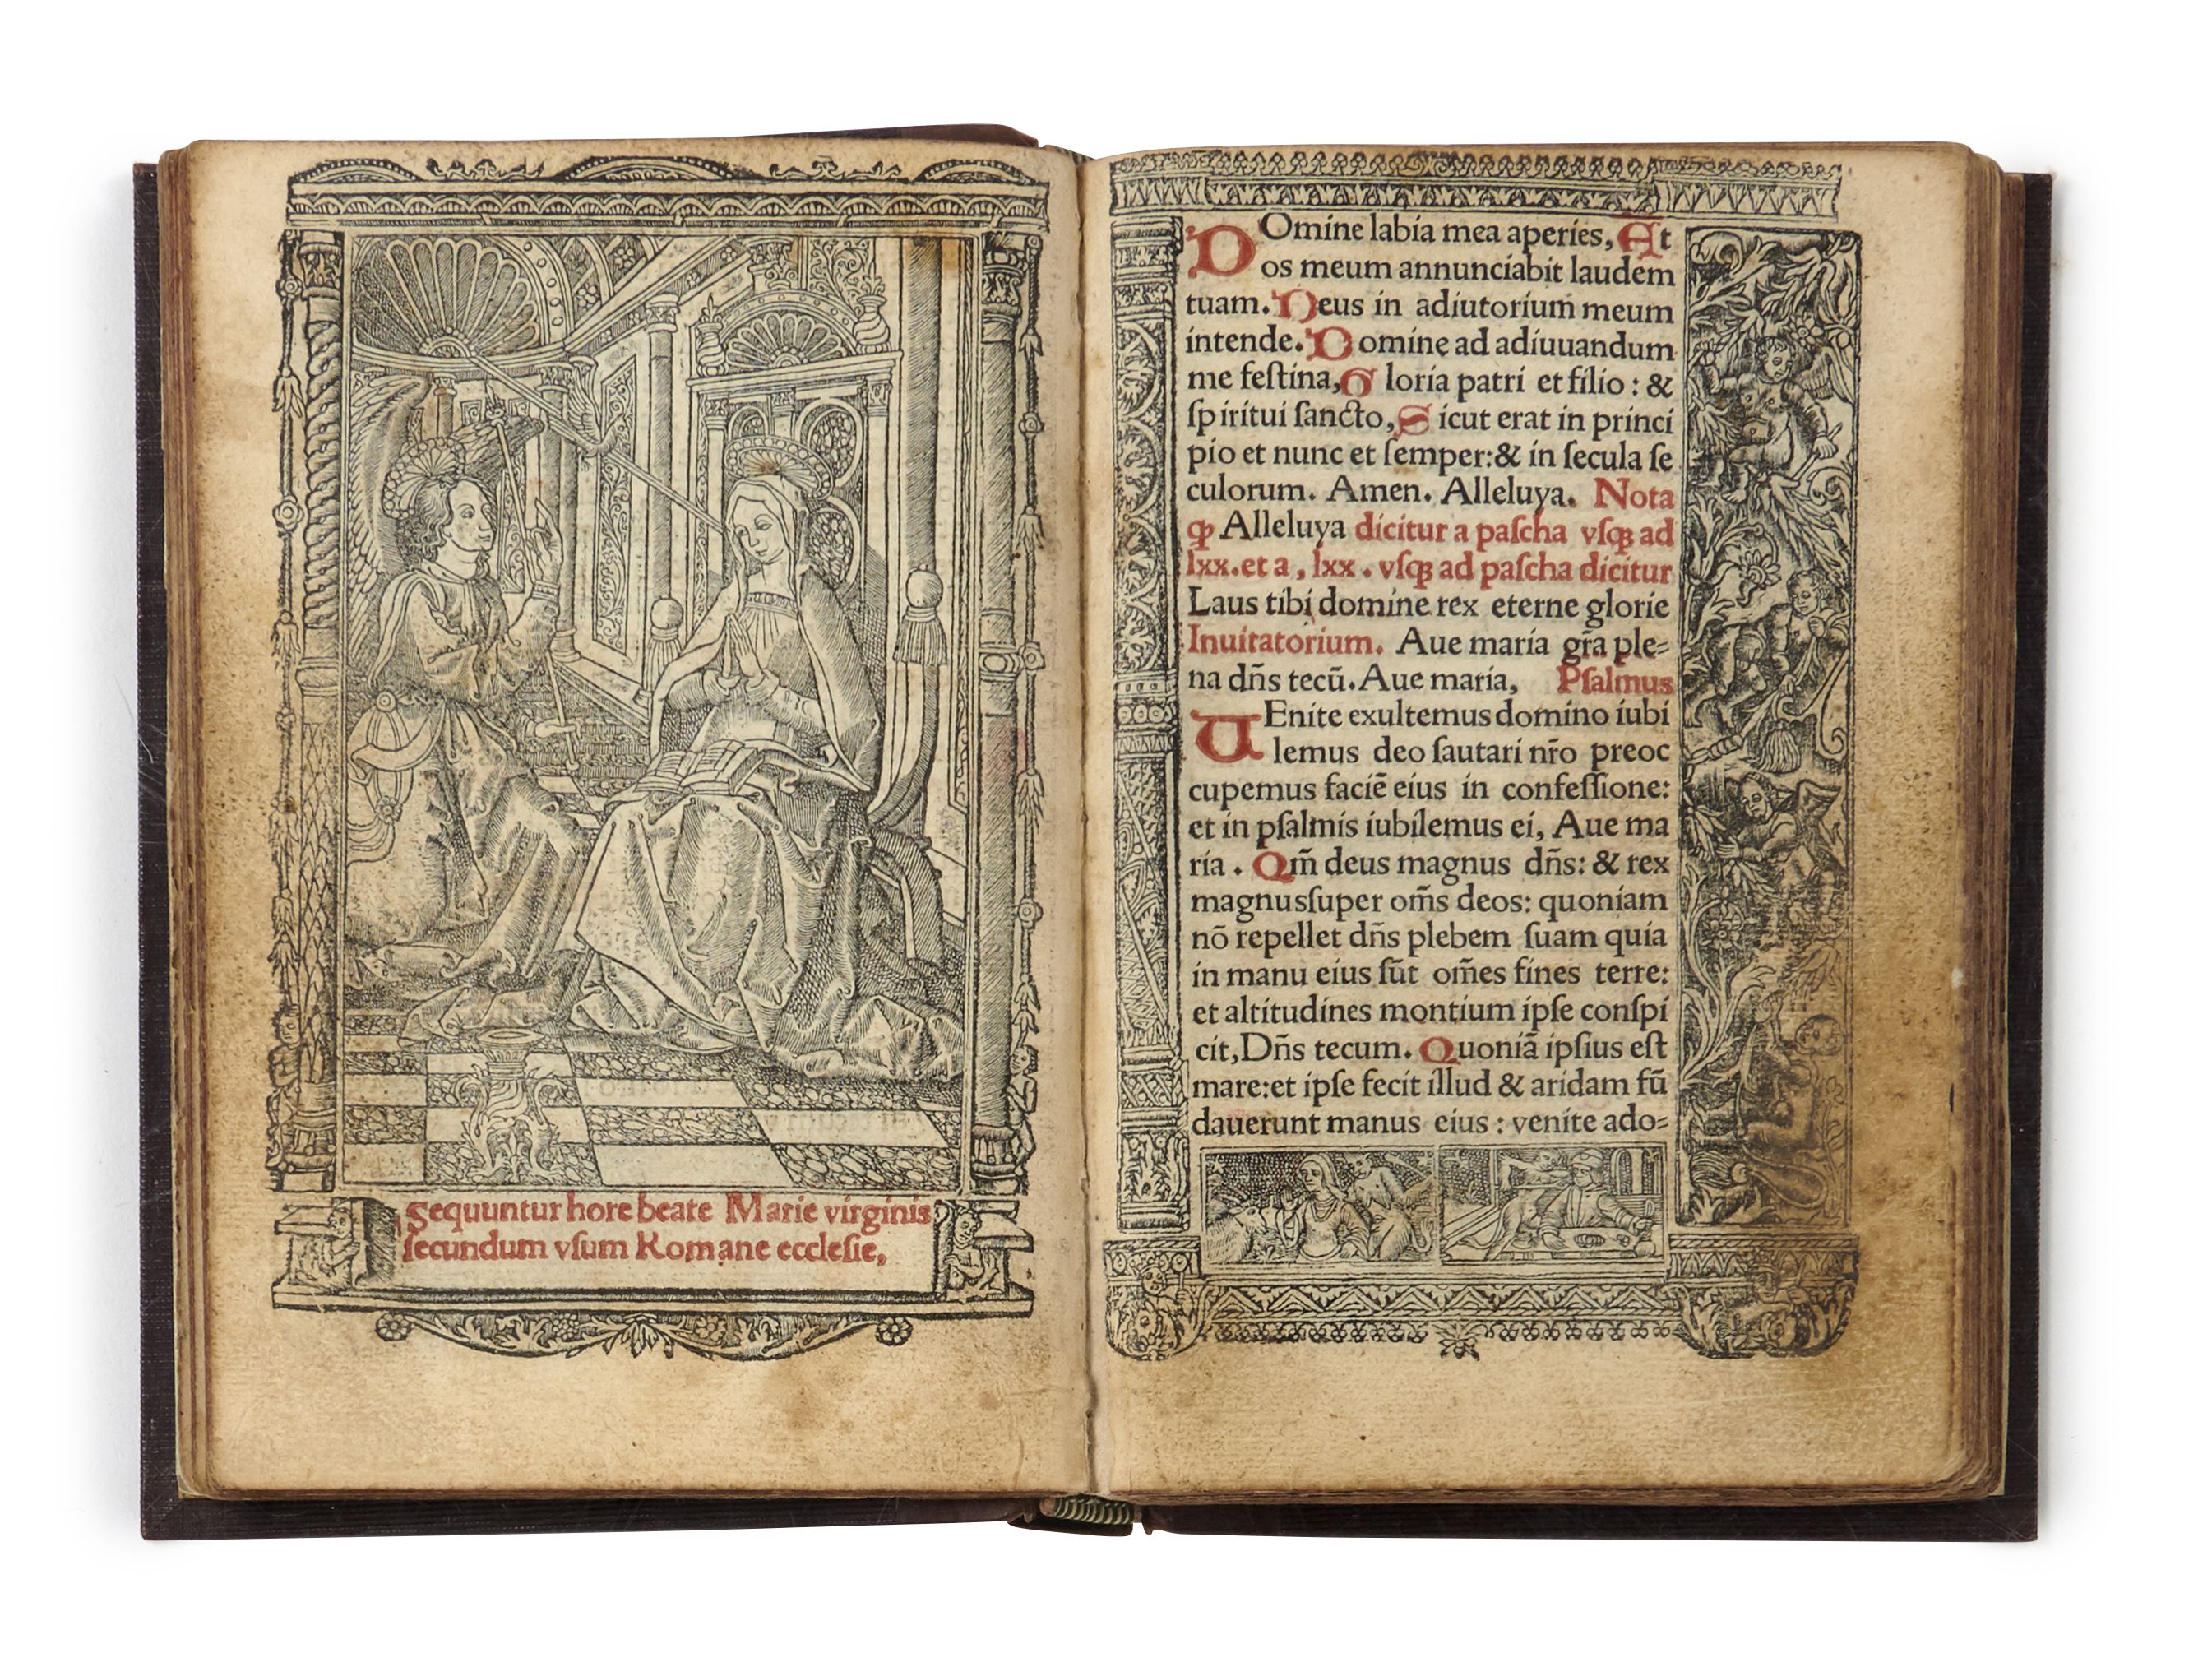 Sequuntur hore beate Marie virginis
ſecundum vſum Romane eccleſie,
DOmine labia mea aperies, Et
os meum annunciabit laudem
tuam. Deus in adiutorium meum
intende. Domine ad adiuuandum
me feſtina, Gloria patri et filio : &
ſpiritui ſancto, Sicut erat in princi
pio et nunc et ſemper:& in ſecula ſe
culorum. Amen. Alleluya. Nota
ꝙ Alleluya dicitur a paſcha vſqꝫ ad
lxx. et a, lxx. vſqꝫ ad paſcha dicitur
Laus tibi domine rex eterne glorie
Inuitatorium. Aue maria gr̄a ple=
na dn̄s tecū. Aue maria, Pſalmus
UEnite exultemus domino iubi
lemus deo ſautari nr̄o preoc
cupemus faciē eius in confeſſione:
et in pſalmis iubilemus ei, Aue ma
ria. Qm̄ deus magnus dn̄s: & rex
magnusſuper om̄s deos: quoniam
nō repellet dn̄s plebem ſuam quia
in manu eius ſūt om̄es fines terre:
et altitudines montium ipſe conſpi
cit, Dn̄s tecum. Quoniā ipſius eſt
mare:et ipſe fecit illud & aridam fū
dauerunt manus eius : venite ado=